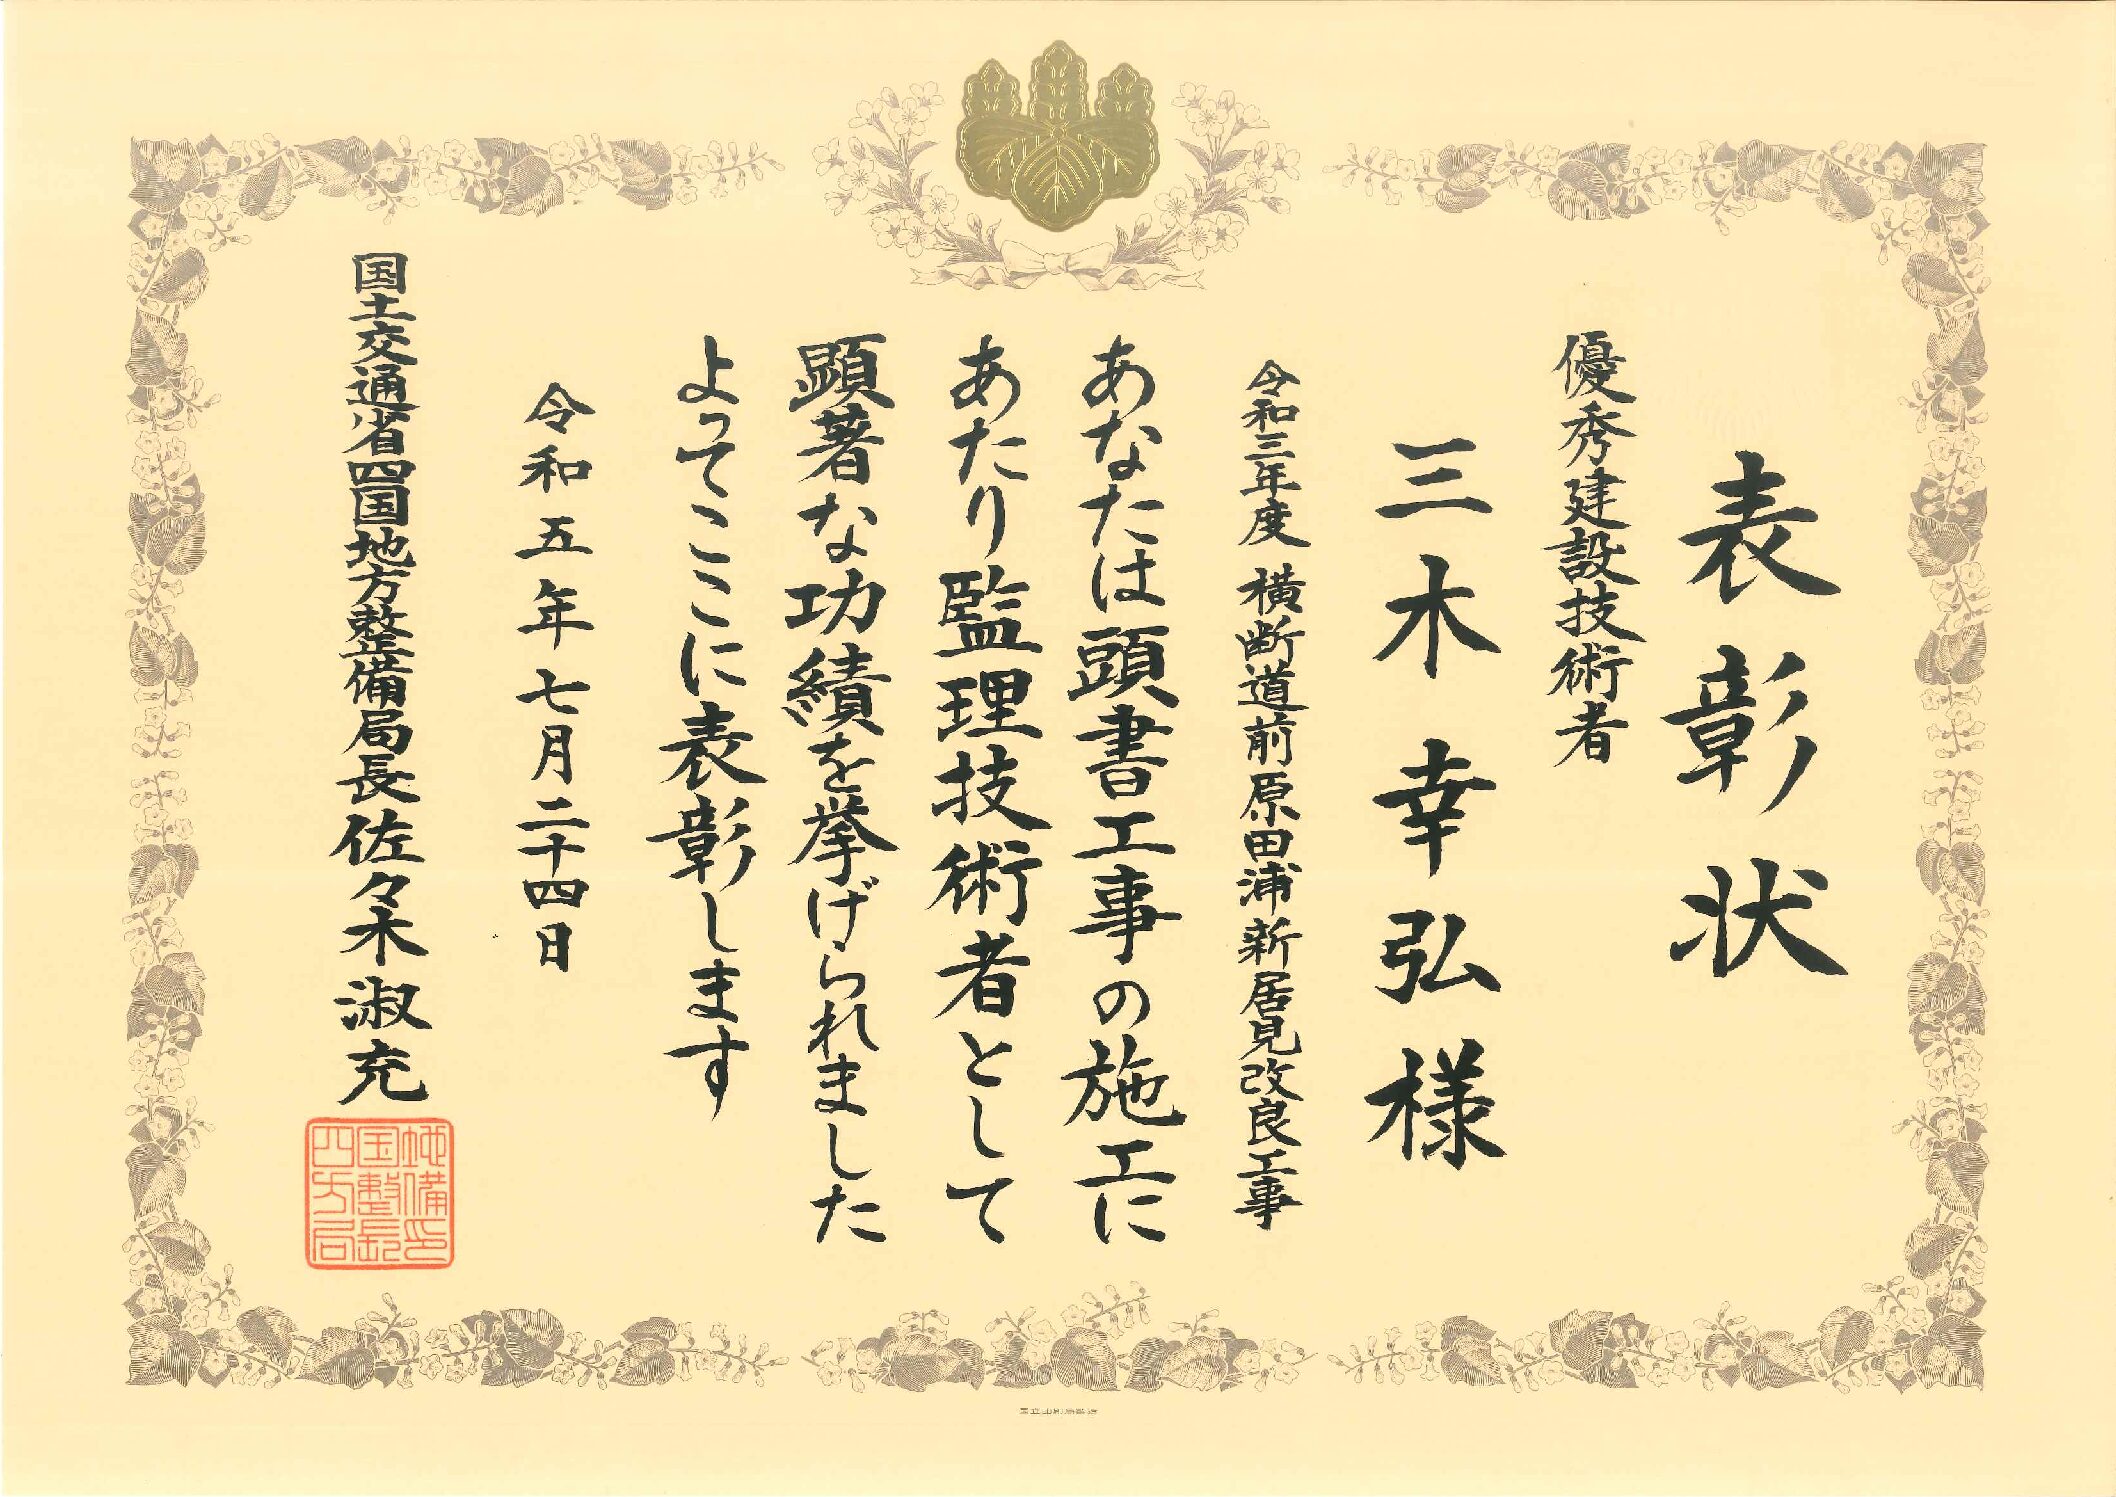 表彰状
優秀建設技術者
三木幸弘様
令和三年度 横断道前原田浦新居見改良工事
あなたは頭書工事の施工に
あたり監理技術者として
顕著な功績を挙げられました
よってここに表彰します
令和五年七月二十四日
国土交通省四国地方整備局長佐々木淑充
地備印
国整長
四方局
国立印刷局製造